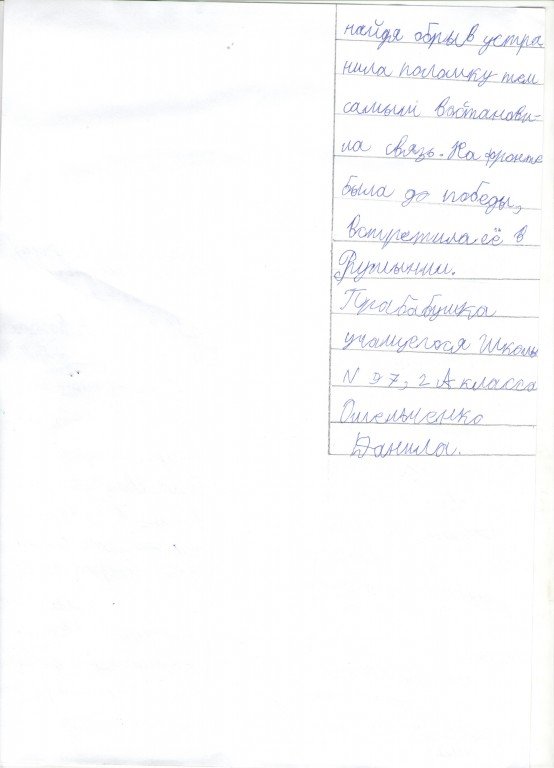 найдя обрыв устра
нила поломку тем
самым востанови-
ла связь. На фронте
была до победы,
встретила её в
Румынии.
Прабабушка
учащегося Школы
N 27, 2 А класса
Омельченко
Данила.